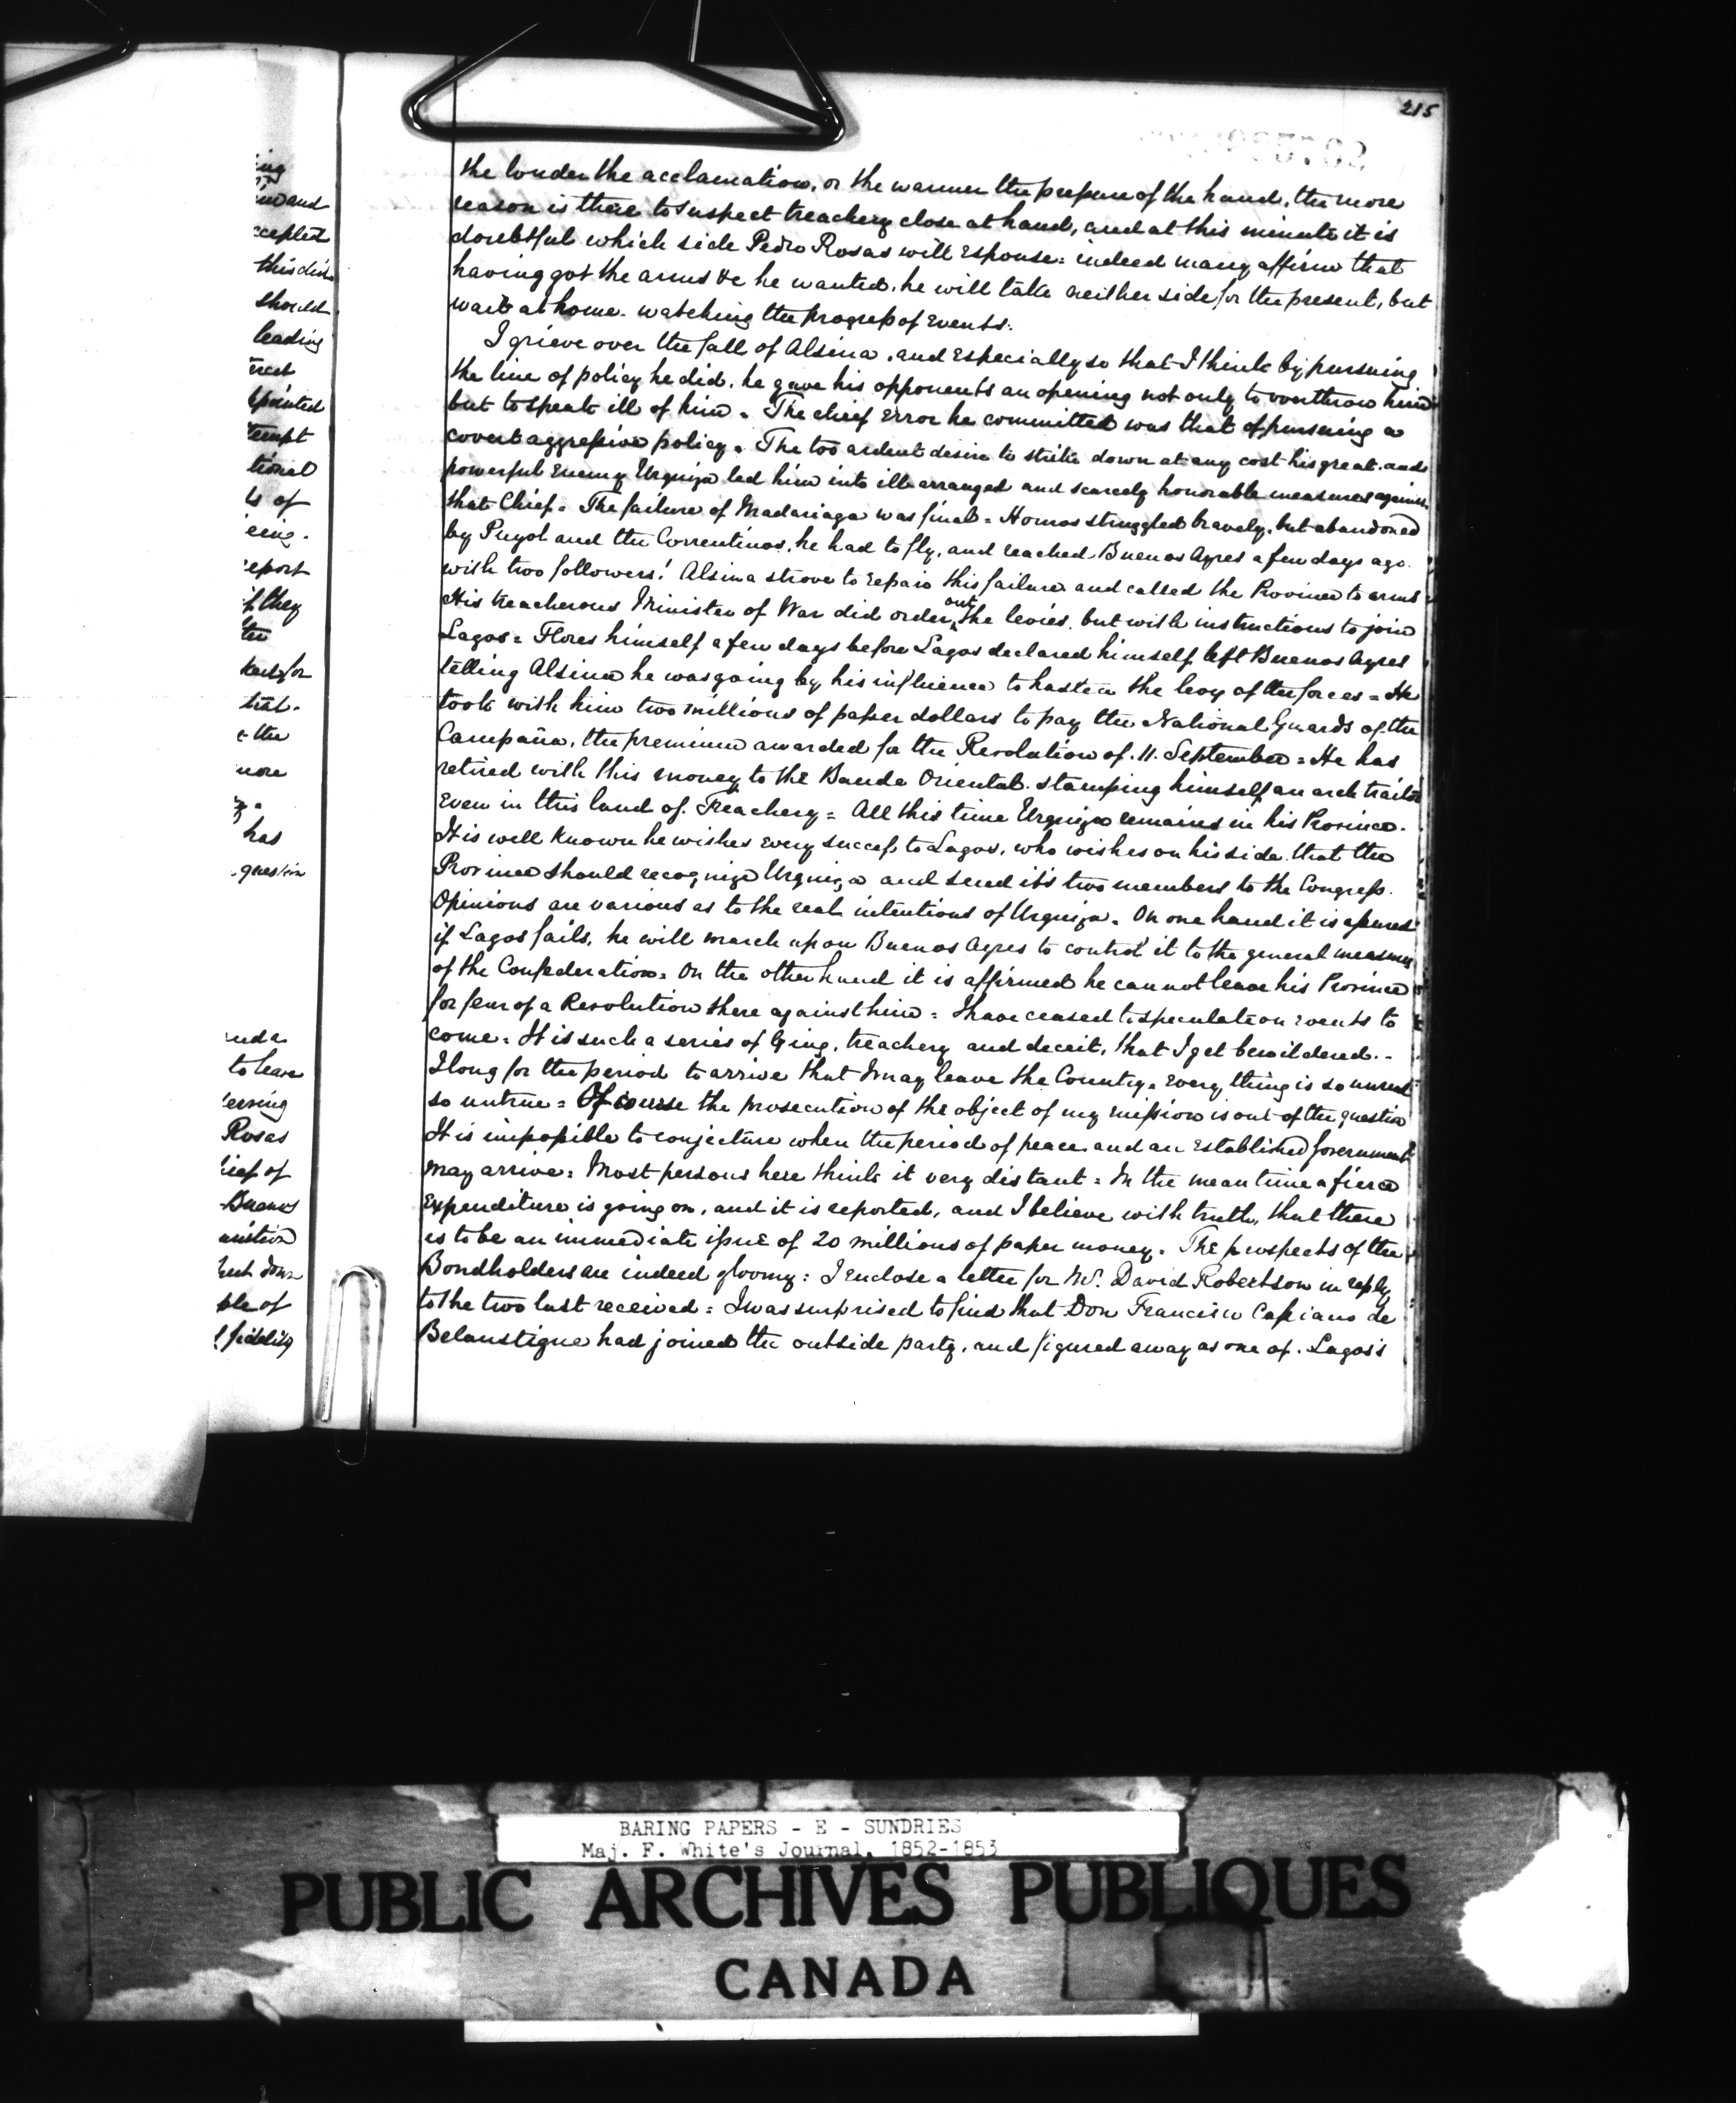 215
the louder the acclamation, or the warmer the pressure of the hand, the more
reason is there to suspect treachery close at hand, and at this minute it is
doubtful which side Pedro Rosas will espouse = indeed many affirm that
having got the arms &c he wanted, he will take neither side for the present, but
wait at home watching the progress of events.
I grieve over the fall of Alsina, and especially so that I think by pursuing
the line of policy he did, he gave his opponents an opening not only to overthrow him
but to speak ill of him = The chief error he committed was that of pursuing a
covert aggressive policy = The too ardent desire to strike down at any cost his great and
powerful enemy Urquiza led him into ill arranged and scarcely honorable measures against
that Chief = The failure of Madariaga was final = Hornos struggled bravely, but abandoned
by Pujol and the Correntinos, he had to fly, and reached Buenos Ayres a few days ago
with two followers! Alsina strove to repair this failure and called the Province to arms
His treacherous Minister of War did order out the levies, but with instructions to join
Lagos = Flores himself a few days before Lagos declared himself, left Buenos Ayres
telling Alsina he was going by his influence to hasten the levy of the forces = He
took with him two millions of paper dollars to pay the National Guards of the
Campaña, the premium awarded for the Revolution of 11. September = He has
retired with this money to the Banda Oriental, stamping himself an arch traitor
even in this land of Treachery = All this time Urquiza remains in his Province.
It is well known he wishes every success to Lagos, who wishes on his side that the
Province should recognize Urquiza and send it's two members to the Congress.
Opinions are various as to the real intentions of Urquiza. On one hand it is
if Lagos fails, he will march upon Buenos Ayres to control it to the general measures
of the Confederation = On the other hand it is affirmed he cannot leave his Province
for fear of a Revolution there against him = I have ceased to speculate on events to
come = It is such a series of lying, treachery and deceit, that I get bewildered --
I long for the period to arrive that I may leave the Country = Every thing is so unreal
so untrue = Of course the prosecution of the object of my mission is out of the question
It is impossible to conjecture when the period of peace and an established Government
may arrive = Most persons here think it very distant = In the mean time a fierce
expenditure is going on, and it is reported, and I believe with truth, that there
is to be an immediate issue of 20 millions of paper money. The prospects of the
Bondholders are indeed gloomy = I enclose a letter for Mr. David Robertson in reply
to the two last received = I was surprised to find that Don Francisco Casiano de
Belaustigue had joined the outside party, and figured away as one of Lagos's
and
ccepted
should
leading
tional
of
report
if they
the
more
has
question
to leave
Rosas
of
Buenos
ble of
BARING PAPERS - E - SUNDRIES
Maj. F. White's Journal, 1852-1853
PUBLIC ARCHIVES PUBLIQUES
CANADA